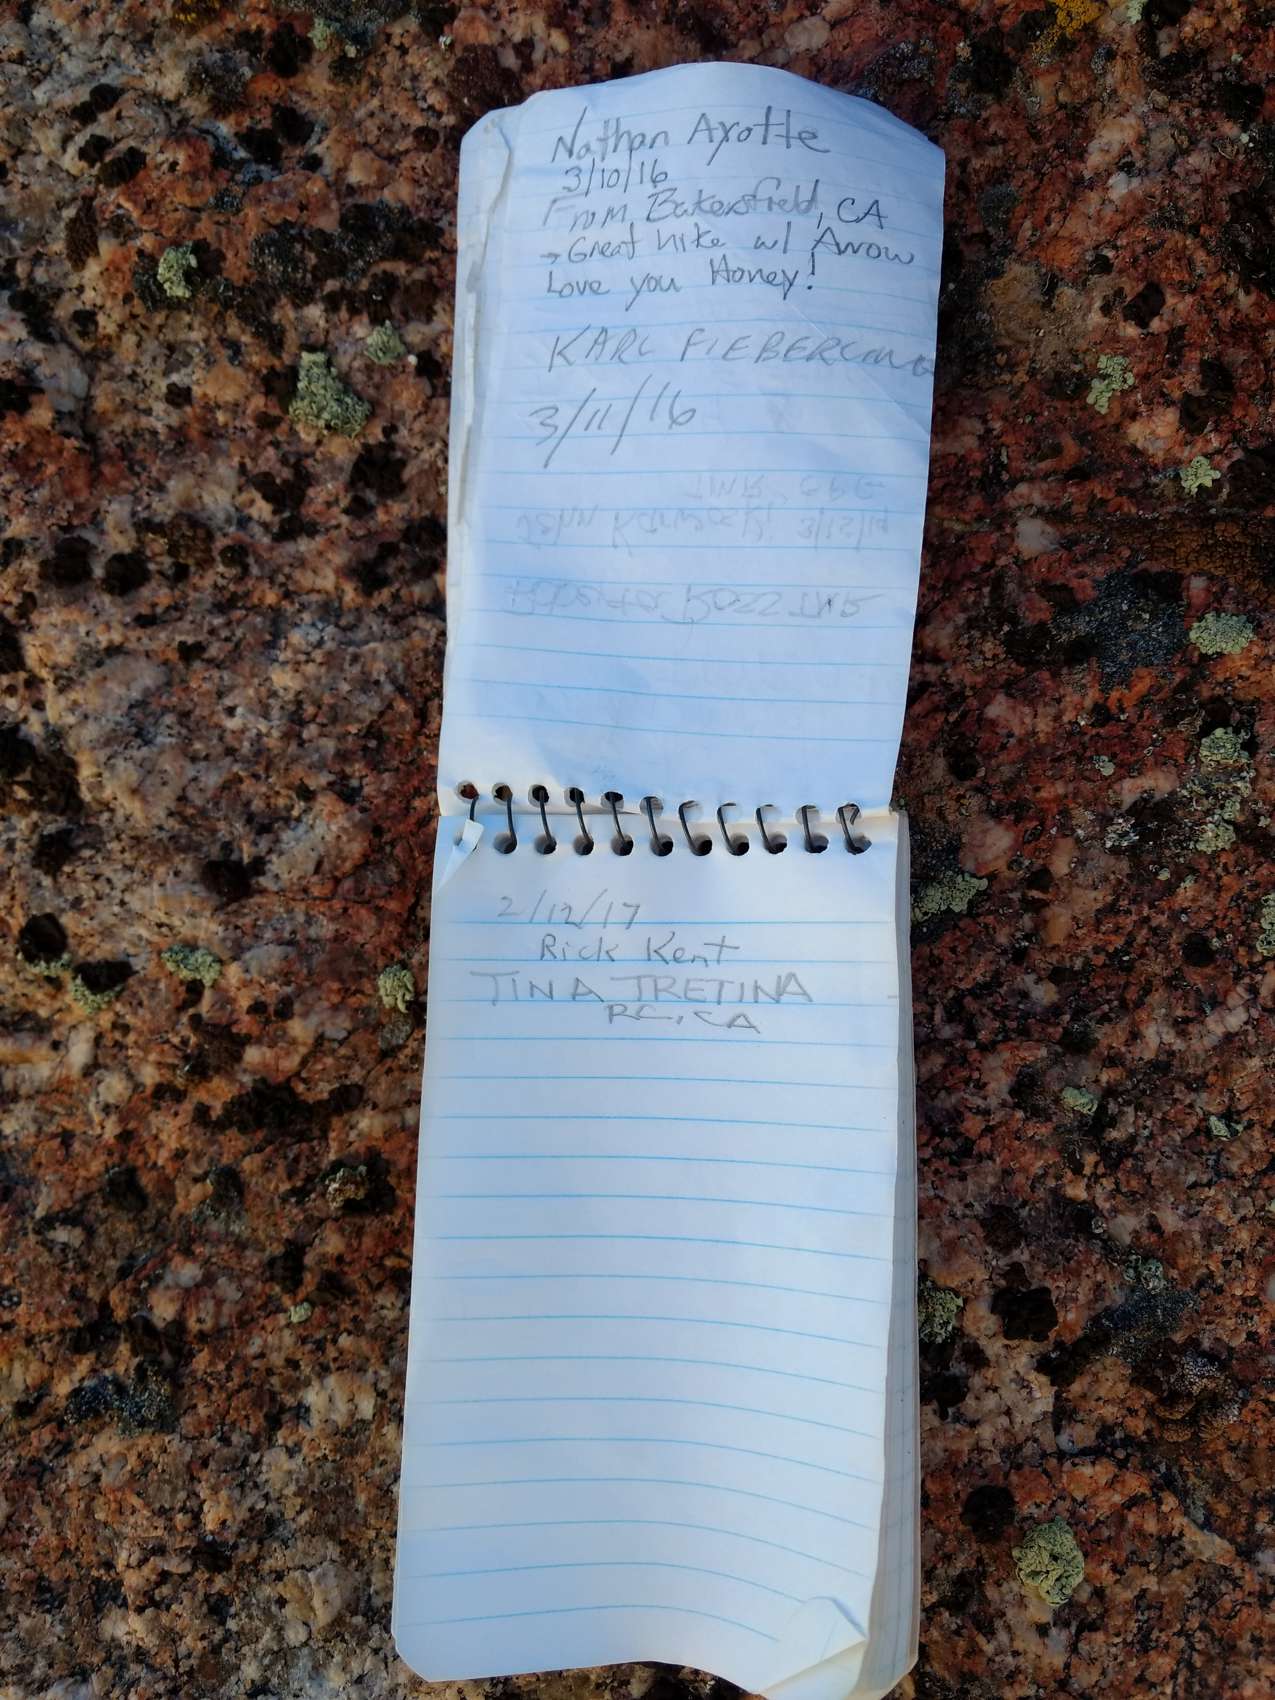 Nathan Ayotte
3/10/16
From Bakersfield, CA
→ Great hike w/ Arrow
Love you Honey!
KARL
3/11/16
2/12/17
Rick Kent
TINA TRETINA
RC, CA